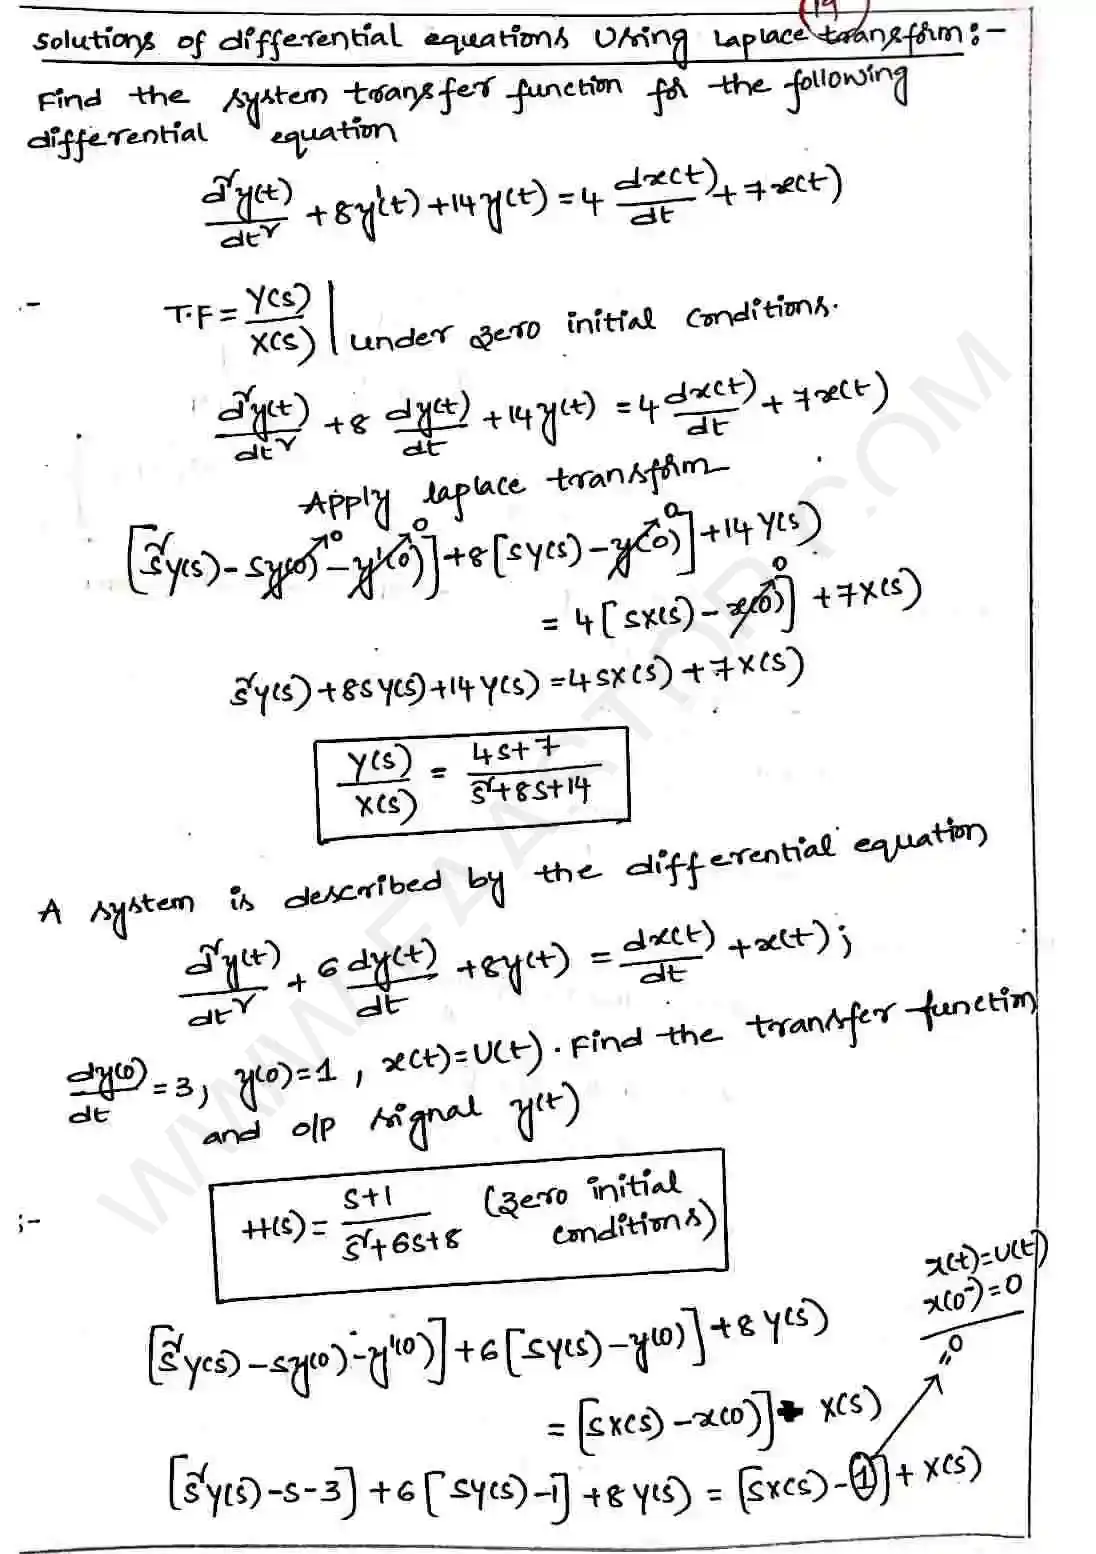 19
Solutions of differential equations Using Laplace transform:-
Find the system transfer function for the following
differential equation
d²y(t)/dt² + 8y'(t) + 14y(t) = 4 dx(t)/dt + 7x(t)
:- T.F = Y(s)/X(s) | under zero initial conditions.
d²y(t)/dt² + 8 dy(t)/dt + 14y(t) = 4 dx(t)/dt + 7x(t)
Apply laplace transform
[s²Y(s) - sy(0)→0 - y'(0)→0] + 8[sY(s) - y(0)→0] + 14Y(s)
= 4[sX(s) - x(0)→0] + 7X(s)
s²Y(s) + 8sY(s) + 14Y(s) = 4sX(s) + 7X(s)
Y(s)/X(s) = (4s+7)/(s²+8s+14)
A system is described by the differential equation
d²y(t)/dt² + 6 dy(t)/dt + 8y(t) = dx(t)/dt + x(t);
dy(0)/dt = 3, y(0)=1, x(t)=U(t). Find the transfer function
and o/p signal y(t)
:- H(s) = (s+1)/(s²+6s+8) (zero initial
conditions)
x(t)=U(t)
x(0⁻)=0
[s²Y(s) - sy(0) - y'(0)] + 6[sY(s) - y(0)] + 8Y(s)
"0
= [sX(s) - x(0)] + X(s)
[s²Y(s) - s - 3] + 6[sY(s) - 1] + 8Y(s) = [sX(s) - 1] + X(s)
WWW.FAASTOP.COM